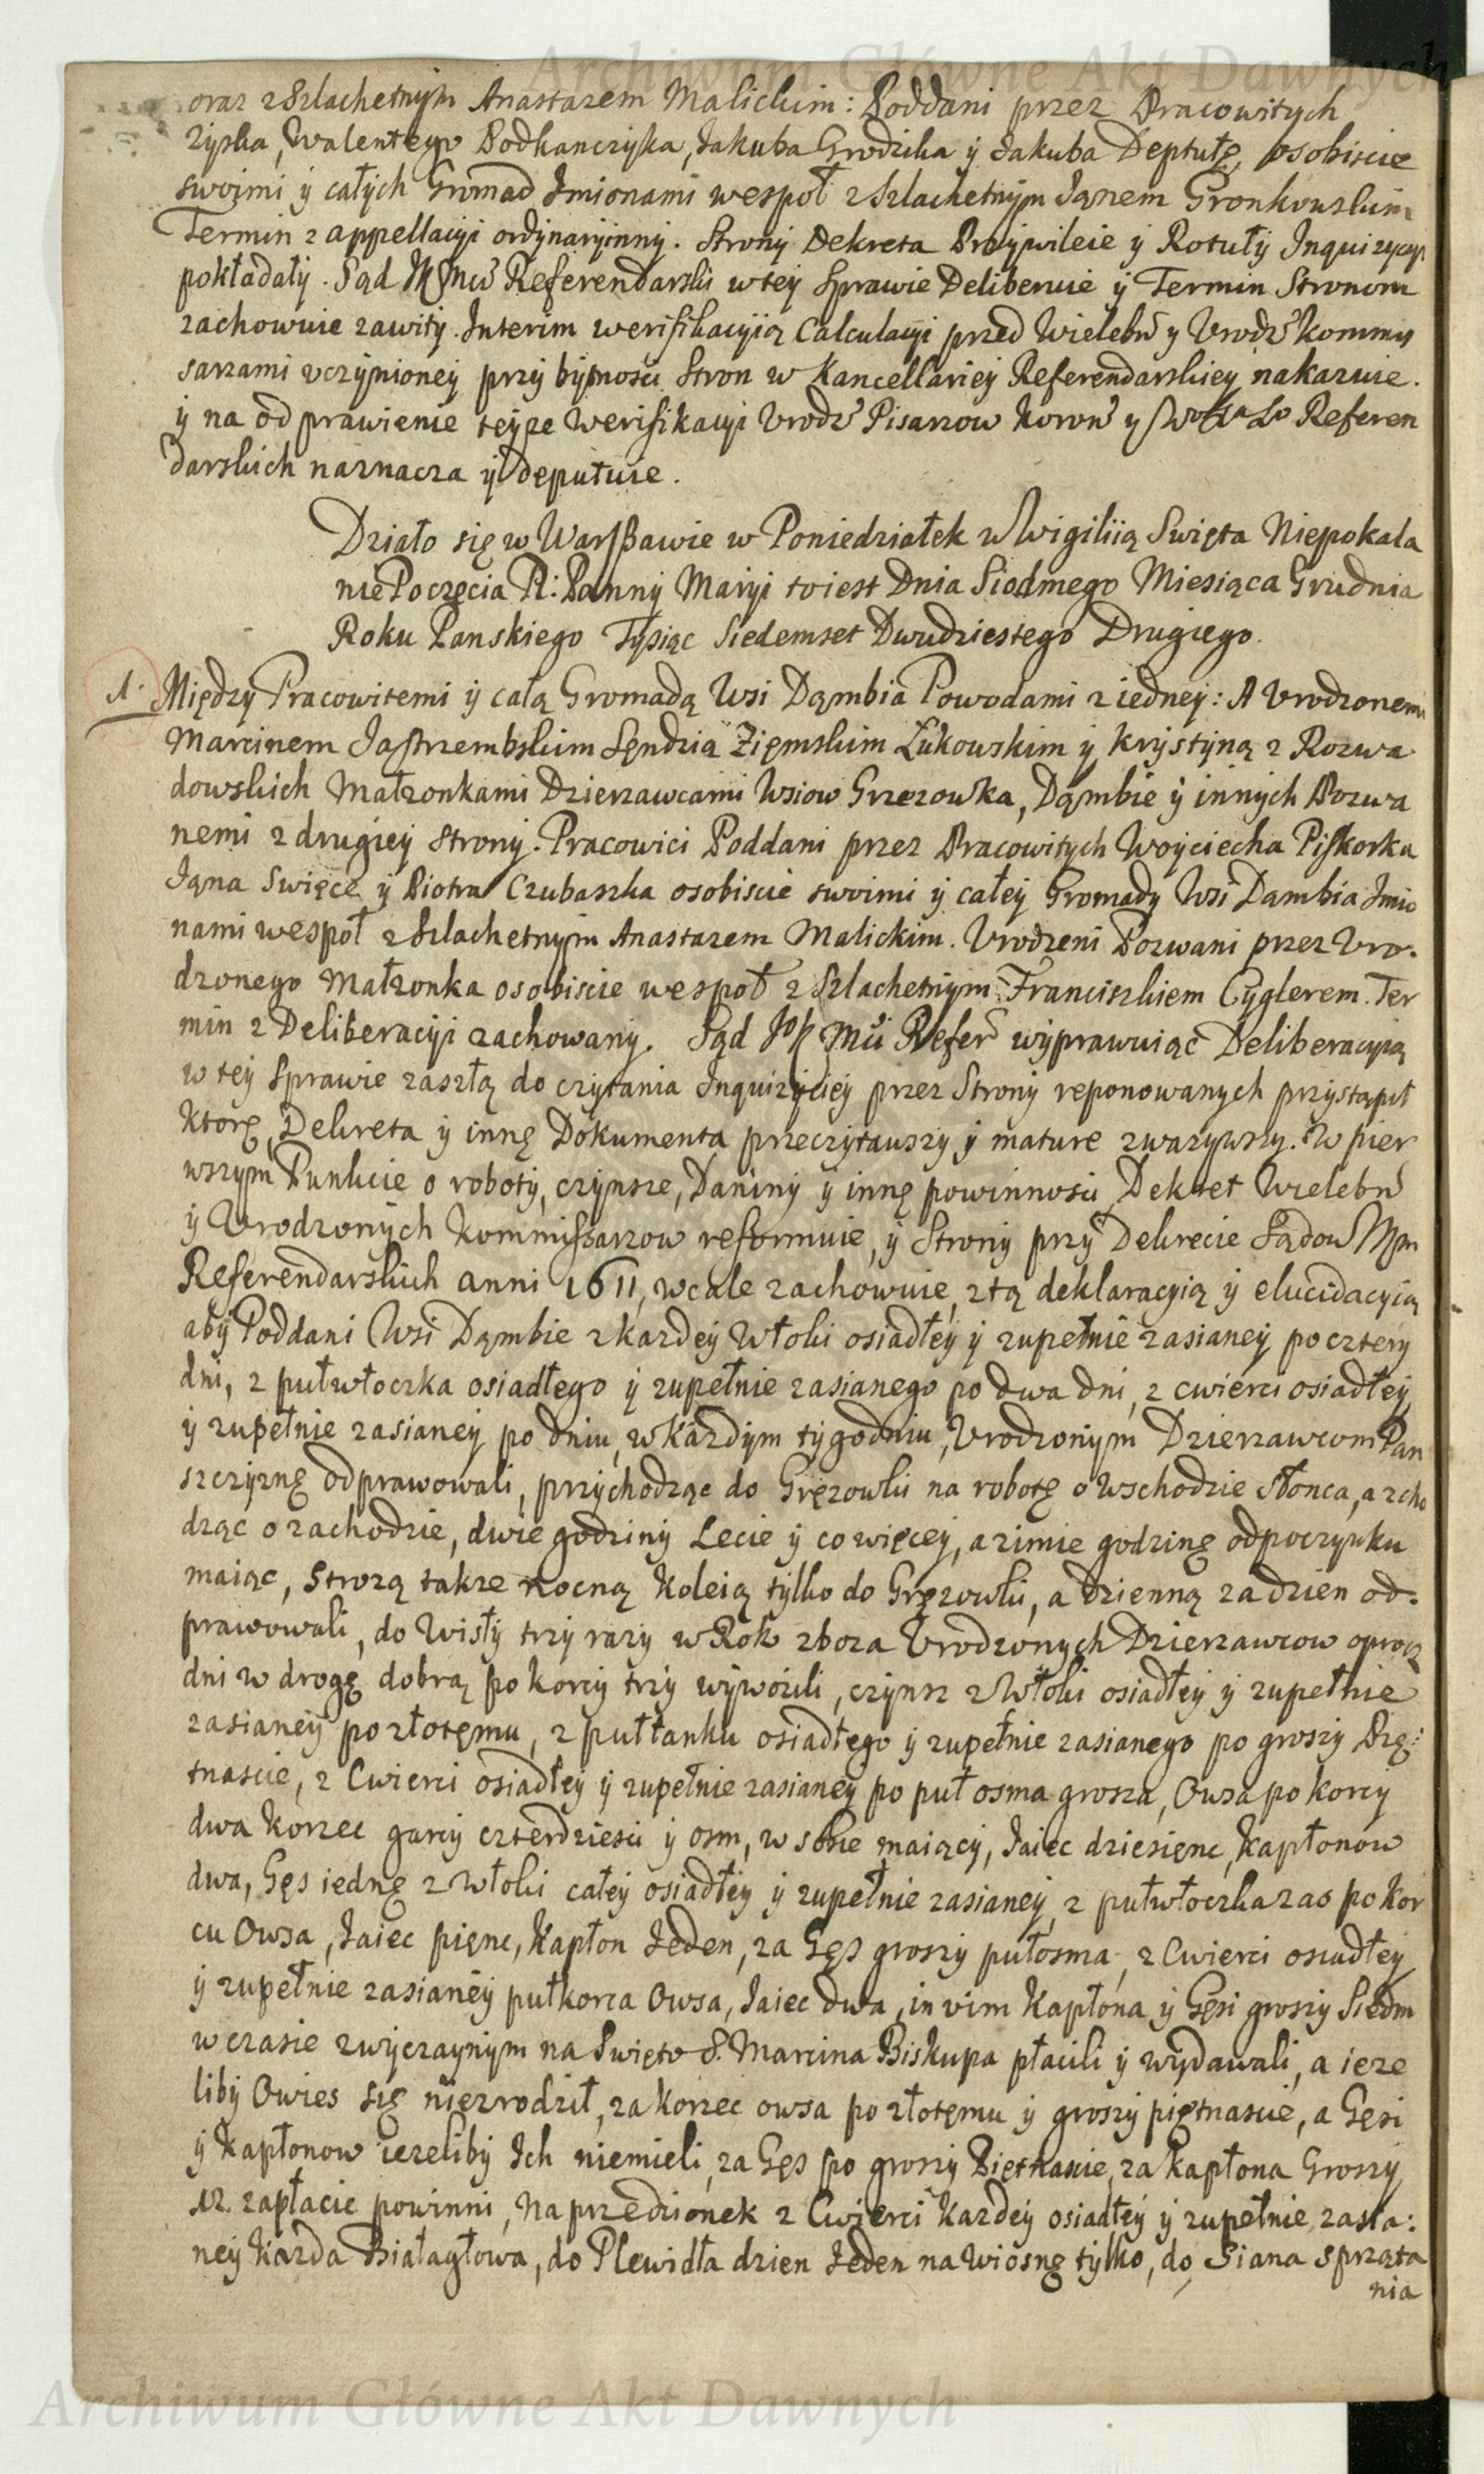 Archiwum Główne Akt Dawnych
oraz z Szlachetnym Anastazem Malickim: Poddani przez Pracowitych
Zyska, Walentego Podkanczyka, Jakuba Grodzika y Jakuba Deptułę, osobiscie
swoimi y całych Gromad Jmionami wespoł z Szlachetnym Janem Gronkowskim
Termin z appellacyi ordynaryinny. Strony Dekreta Przywileie y Rotuły Inquizycyi
pokładały. Sąd Referendarski w tey Sprawie Deliberuie y Termin Stronom
zachowuie zawity. Interim werifikacyią Calculacyi przed Wielebn y Vrodz kommis
sarzami vczynioney przy bytnosci Stron w Kancellariey Referendarskiey nakazuie.
y na odprawienie teyze werifikacyi Vrodz Pisarzow Koron y Referen
darskich naznacza y deputuie.
Działo się w Warszawie w Poniedziałek w Wigiliią Swięta Niepokala
nie Poczęcia N: Panny Maryi to iest Dnia Siodmego Miesiąca Grudnia
Roku Panskiego Tysiąc Siedemset Dwudziestego Drugiego.
1. Między Pracowitemi y całą Gromadą Wsi Dąmbia Powodami z iedney: A Vrodzonemi
Marcinem Jastrzembskim Sędzią Ziemskim Łukowskim y Krystyną z Rozwa
dowskich Małzonkami Dzierzawcami Wsiow Grezowka, Dąmbie y innych Pozwa
nemi z drugiey strony. Pracowici Poddani przez Pracowitych Woyciecha Piskorka
Jana Swięce y Piotra Czubaszka osobiscie swoimi y całey Gromady Wsi Dambia Jmio
nami wespoł z Szlachetnym Anastazem Malickim. Vrodzeni Pozwani przez Vro-
dzonego Małzonka osobiscie wespoł z Szlachetnym Franciszkiem Cyglerem. Ter
min z Deliberacyi zachowany. Sąd Refer wyprawuiąc Deliberacyią
w tey Sprawie zaszłą do czytania Inquizyciey przez Strony reponowanych przystąpił
ktorę, Dekreta y innę Dokumenta przeczytawszy y mature zwazywszy. W pier
wszym Punkcie o roboty, czynsze, Daniny y innę powinnosci Dekret Wielebn
y Vrodzonych Kommissarzow reformuie, y Strony przy Dekrecie Sądow
Referendarskich anni 1611, wcale zachowuie, z tą deklaracyią y elucidacyią
aby Poddani Wsi Dąmbie z kazdey Włoki osiadłey y zupełnie zasianey po cztery
dni, z pułwłoczka osiadłego y zupełnie zasianego po dwa dni, z cwierci osiadłey
y zupełnie zasianey po dniu, w kazdym tygodniu, Vrodzonym Dzierzawcom Pan
szczyznę odprawowali, przychodząc do Grezowki na robotę o Wschodzie Słonca, a zcho
dząc o zachodzie, dwie godziny Lecie y co więcey, a zimie godzinę odpoczynku
maiąc, Strozą takze nocną Koleią tylko do Grezowki, a dzienną za dzien od-
prawowali, do Wisły trzy razy w Rok zboza Vrodzonych Dzierzawcow oprocz
dni w drogę dobrą po korcy trzy wywozili, czynsz z Włoki osiadłey y zupełnie
zasianey po złotęmu, z pułłanku osiadłego y zupełnie zasianego po groszy Pię:
tnascie, z Cwierci osiadłey y zupełnie zasianey po puł osma grosza, Owsa po korcy
dwa Korzec garcy czterdziesci y osm, w sobie maiący, Jaiec dziesięnc, Kapłonow
dwa, Gęs iednę z Włoki całey osiadłey y zupełnie zasianey, z pułwłoczka zas po kor
cu Owsa, Jaiec pięnc, Kapłon Jeden, za Gęs groszy pułosma, z Cwierci osiadłey
y zupełnie zasianey pułkorca Owsa, Jaiec dwa, in vim Kapłona y Gęsi groszy Siedm
w czasie zwyczaynym na Swięto S. Marcina Biskupa płacili y wydawali, a ieze
liby Owies się niezrodził, za korzec owsa po złotęmu y groszy piętnascie, a Gęsi
y Kapłonow iezeliby Ich niemieli, za Gęs po groszy Piętnascie, za Kapłona Groszy
12. zapłacic powinni, Na przedzionek z Cwierci kazdey osiadłey y zupełnie zasia:
ney kazda Białagłowa, do Plewidła dzien Jeden na wiosnę tylko, do Siana sprząta
nia
Archiwum Główne Akt Dawnych